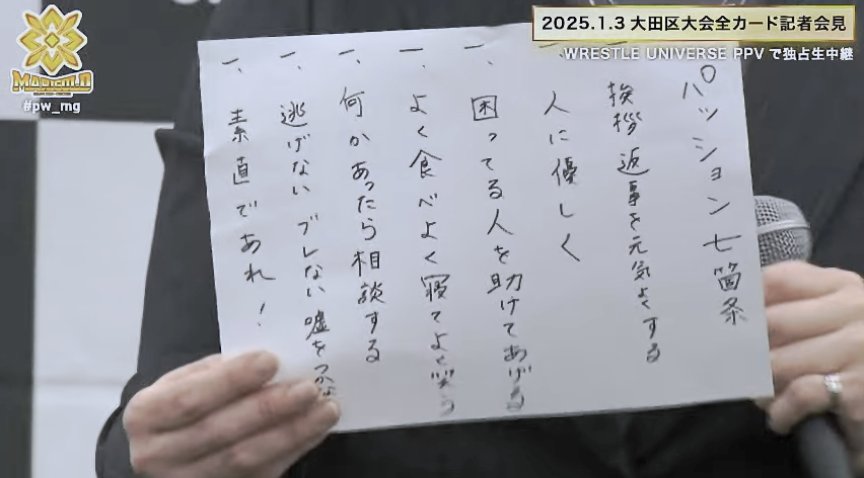 MARIGOLD
#pw_mg
2025.1.3 大田区大会全カード記者会見
WRESTLE UNIVERSE PPVで独占生中継
パッション七箇条
一、挨拶 返事を元気よくする
一、人に優しく
一、困ってる人を助けてあげる
一、よく食べよく寝てよく笑う
一、何かあったら相談する
一、逃げない ブレない 嘘をつかな
一、素直であれ!